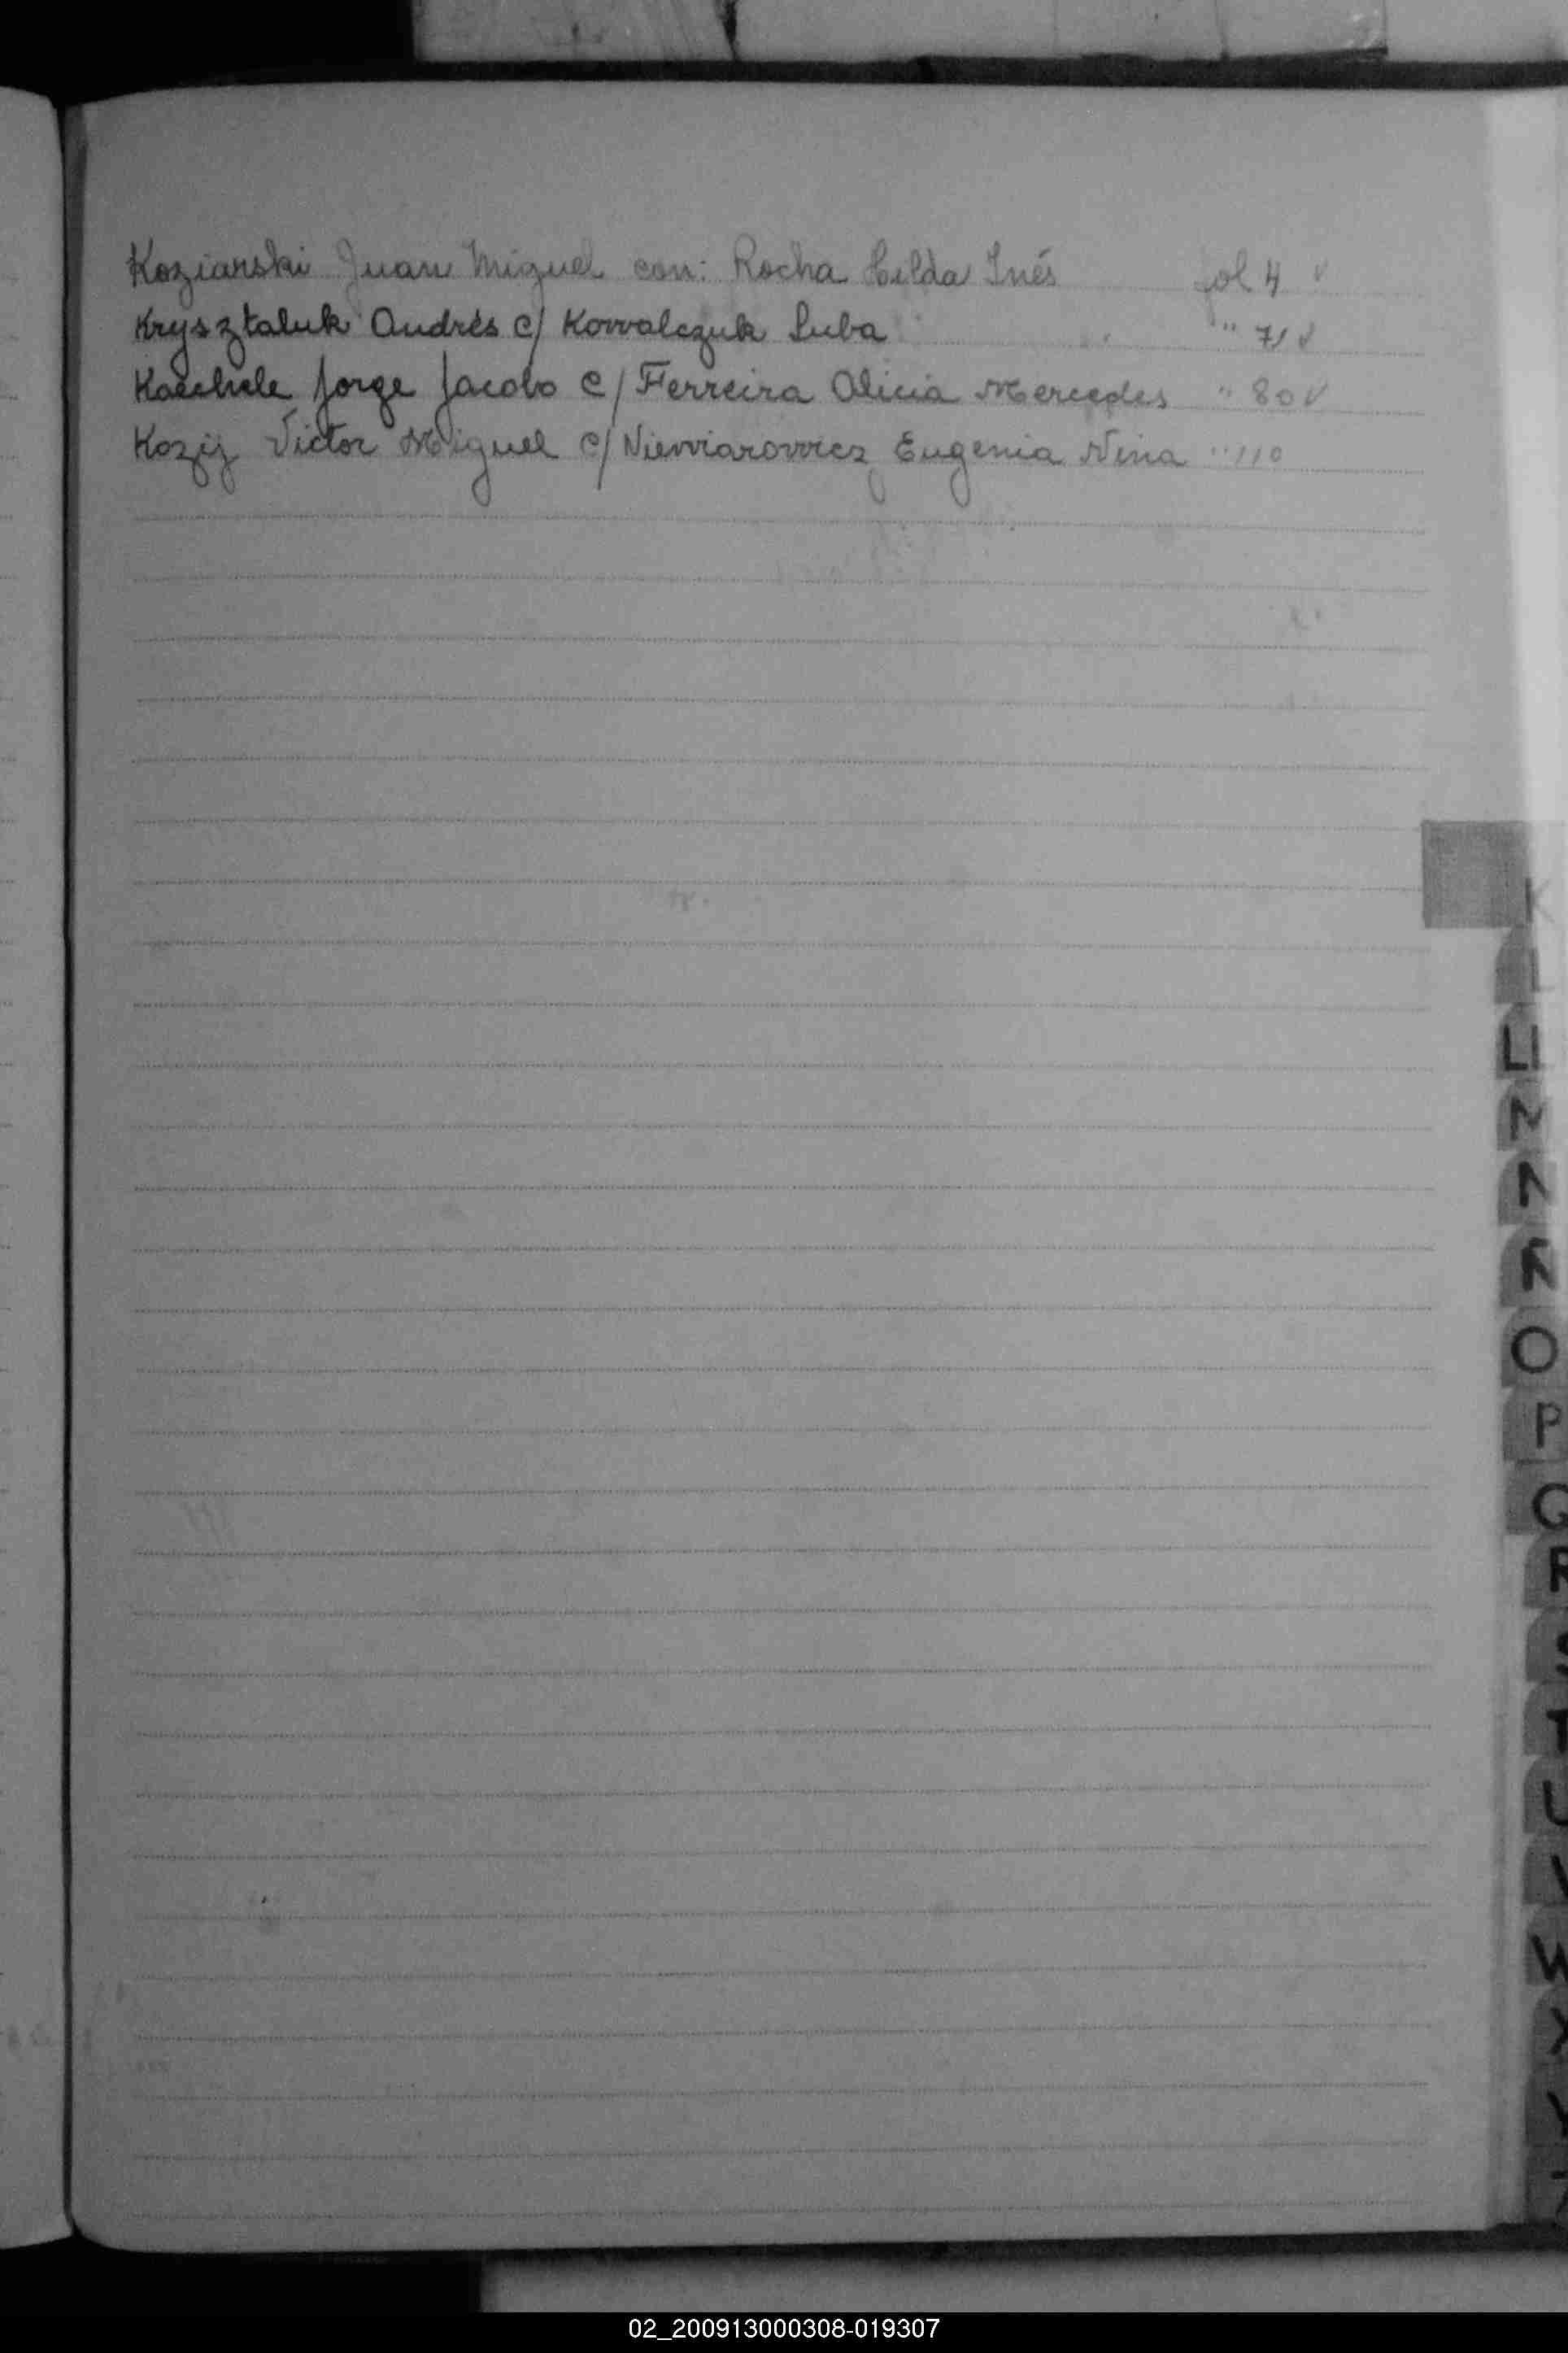 Koziarski Juan Miguel con: Rocha Hilda Inés fol 4 v
Krysztaluk Andrés c/ Kowalczuk Luba " 71 v
Kaechele Jorge Jacobo c/ Ferreira Alicia Mercedes " 80 v
Kozij Victor Miguel c/ Niewiarowicz Eugenia Nina " 110
K
L
Ll
M
N
Ñ
O
P
Q
R
S
T
U
V
W
X
Y
Z
02_200913000308-019307